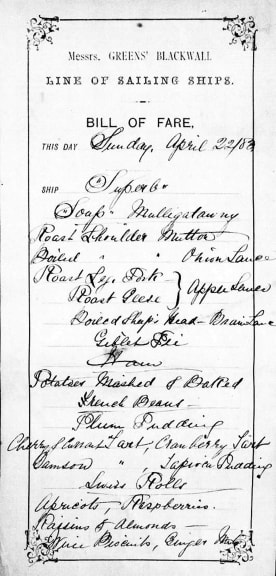 Messrs. GREENS' BLACKWALL
LINE OF SAILING SHIPS.
BILL OF FARE,
THIS DAY Sunday, April 22/83
SHIP "Superb"
"Soup" Mulligatawny
Roast Shoulder Mutton
Boiled " " Onion Sauce
Roast Leg Pork
Roast Geese } Apple Sauce
Boiled Sheep's Head - Brain Sauce
Giblet Pie
Ham
Potatoes Mashed & Baked
French Beans -
Plum Pudding
Cherry & Currant Tart, Cranberry Tart
Damson " , Tapioca Pudding
Swiss Rolls
Apricots, Raspberries.
Raisins & Almonds -
Wine Biscuits, Ginger Nuts